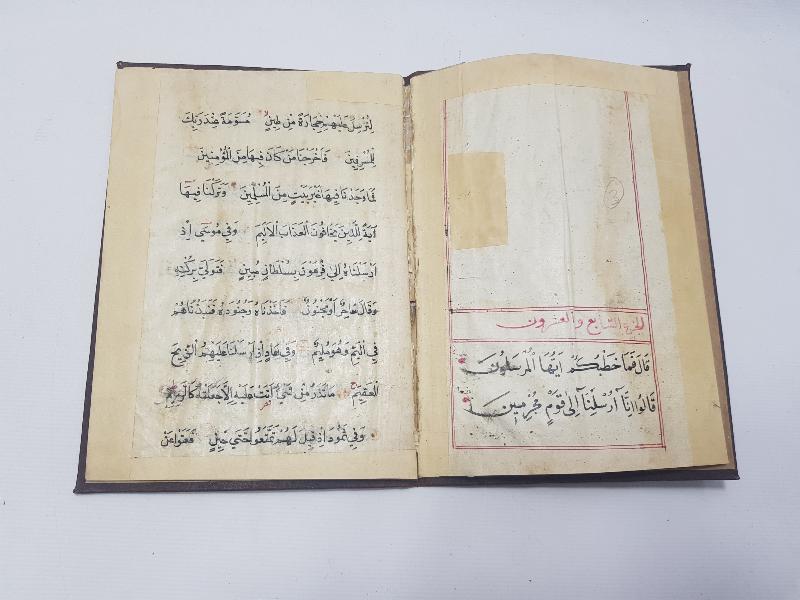 الجزء السابع والعشرون
قَالَ فَمَا خَطْبُكُمْ اَيُّهَا الْمُرْسَلُونَ
قَالُوا اِنَّا اُرْسِلْنَا اِلٰى قَوْمٍ مُجْرِمِينَ
لِنُرْسِلَ عَلَيْهِمْ حِجَارَةً مِنْ طِينٍ مُسَوَّمَةً عِنْدَ رَبِّكَ
لِلْمُسْرِفِينَ فَاَخْرَجْنَا مَنْ كَانَ فِيهَا مِنَ الْمُؤْمِنِينَ
فَمَا وَجَدْنَا فِيهَا غَيْرَ بَيْتٍ مِنَ الْمُسْلِمِينَ وَتَرَكْنَا فِيهَا
اٰيَةً لِلَّذِينَ يَخَافُونَ الْعَذَابَ الْاَلِيمَ وَفِي مُوسٰى اِذْ
اَرْسَلْنَاهُ اِلٰى فِرْعَوْنَ بِسُلْطَانٍ مُبِينٍ فَتَوَلّٰى بِرُكْنِهِ
وَقَالَ سَاحِرٌ اَوْ مَجْنُونٌ فَاَخَذْنَاهُ وَجُنُودَهُ فَنَبَذْنَاهُمْ
فِي الْيَمِّ وَهُوَ مُلِيمٌ وَفِي عَادٍ اِذْ اَرْسَلْنَا عَلَيْهِمُ الرِّيحَ
الْعَقِيمَ مَا تَذَرُ مِنْ شَيْءٍ اَتَتْ عَلَيْهِ اِلَّا جَعَلَتْهُ كَالرَّمِيمِ
وَفِي ثَمُودَ اِذْ قِيلَ لَهُمْ تَمَتَّعُوا حَتّٰى حِينٍ فَعَتَوْا عَنْ